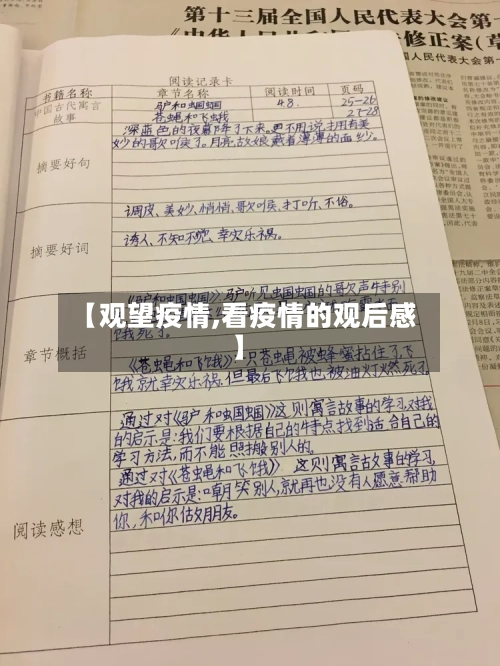 第十三届全国人民代表大会第一
修正案(草
国人民代表大会第一
阅读记录卡
书籍名称 章节名称 阅读时间 页码
中国古代寓言故事 驴和蝈蝈 4.8. 25-26
苍蝇和飞蛾 27-28
摘要好句
深蓝色的夜幕降了下来。更不用说拥有美
妙的歌喉了。月亮姑娘戴着薄薄的面纱。
摘要好词
调皮、美妙、悄悄、歌喉、打听、不俗。
诱人、不知不觉、幸灾乐祸。
章节概括
《驴和蝈蝈》:驴听见蝈蝈的歌声特别
【观望疫情,看疫情的观后感
】
饿死了。
《苍蝇和飞蛾》:一只苍蝇被蜂蜜粘住了,飞
蛾就幸灾乐祸,但最后飞蛾也被油灯燃死了
阅读感想
通过对《驴和蝈蝈》这则寓言故事的学习,对我
的启示是:我们要根据自己的特点找到适合自己的
学习方法,而不能照搬别人的。
通过对《苍蝇和飞蛾》这则寓言故事的学习,
对我的启示是:嘲笑别人,就再也没有人愿意帮助
你,和你做朋友。